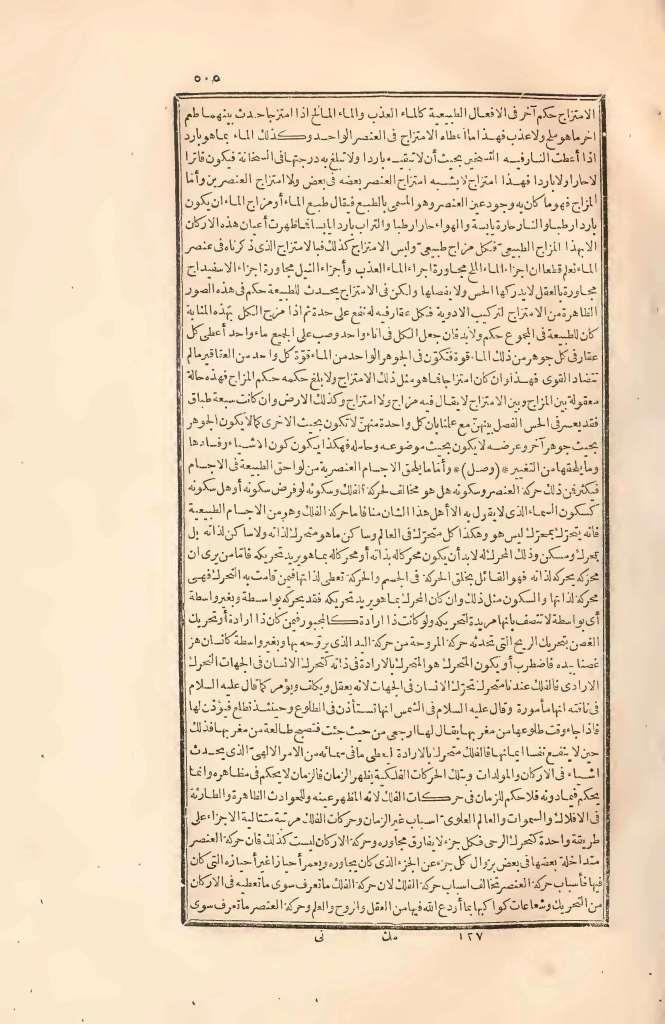 ٥٠٥
الامتزاج حكم آخر فى الافعال الطبيعية كالماء العذب والماء المالح اذا امتزجا حدث بينهما طعم
آخر ما هو ملح ولا عذب فهذا ما أعطاه الامتزاج فى العنصر الواحد وكذلك الماء بما هو بارد
اذا أعطت النار فيه التسخين بحيث أن لا تبقيه باردا ولا تبلغ به درجتها فى السخانة فيكون فاترا
لا حارا ولا باردا فهذا امتزاج لا يشبه امتزاج العنصر بعضه فى بعض ولا امتزاج العنصرين وأما
المزاج فهو ما كان به وجود عين العنصر وهو المسمى بالطبع فيقال طبع الماء أو مزاج الماء ان يكون
باردا رطبا والنار حارة يابسة والهواء حارا رطبا والتراب باردا يابسا فما ظهرت أعيان هذه الاركان
الا بهذا المزاج الطبيعى فكل مزاج طبيعى وليس الامتزاج كذلك فبالامتزاج الذى ذكرناه فى عنصر
الماء نعلم قطعا ان اجزاء الماء الملح مجاورة اجزاء الماء العذب وأجزاء النيل مجاورة اجزاء الاسفيداج
مجاورة بالعقل لا يدركها الحس ولا يفصلها ولكن فى الامتزاج يحدث للطبيعة حكم فى هذه الصور
الظاهرة من الامتزاج لتركيب الادوية فكل عقار فيه له نفع على حدة ثم اذا مزج الكل بهذه المثابة
كان للطبيعة فى المجموع حكم ولا بد فان جعل الكل فى اناء واحد وصب على الجميع ماء واحد أعطى كل
عقار فى كل جوهر من ذلك الماء قوة فتكون فى الجوهر الواحد من الماء قوة كل واحد من العقاقير ما لم
تتضاد القوى فهذا وان كان امتزاجا فما هو مثل ذلك الامتزاج ولا يبلغ حكمه حكم المزاج فهذه حالة
معقولة بين المزاج وبين الامتزاج لا يقال فيه مزاج ولا امتزاج وكذلك الارض وان كانت سبعة طباق
فقد يعسر فى الحس الفصل بينهن مع علمنا بان كل واحدة منهن لا تكون بحيث الاخرى كما لا يكون الجوهر
بحيث جوهر آخر وعرضه لا يكون بحيث موضوعه وحامله فهكذا يكون كون الاشياء وفسادها
وما يلحقها من التغيير * (وصل) * وأما ما يلحق الاجسام العنصرية من لواحق الطبيعة فى الاجسام
فيكثر فمن ذلك حركة العنصر وسكونه هل هو مخالف لحركة الفلك وسكونه لو فرض سكونه أو هل سكونه
كسكون السماء الذى لا يقول به الا أهل هذا الشأن منا فاما حركة الفلك وهو من الاجسام الطبيعية
فانه يتحرك بمحرك ليس هو وهكذا كل متحرك فى العالم وساكن ما هو متحرك لذاته ولا ساكن لذاته بل
بمحرك ومسكن وذلك المحرك له لا بد أن يكون محركا له بذاته أو محركا له بما هو يريد تحريكه فاما من يرى ان
محركه يحركه لذاته فهو القائل بخلق الحركة فى الجسم والحركة تعطى لذاتها فيمن قامت به التحرك فهى
محركة لذاتها والسكون مثل ذلك وان كان المحرك بما هو يريد تحريكه فقد يحركه بواسطة وبغير واسطة
أى بواسطة لا تتصف بأنها مريدة لتحريكه ولو كانت ذا ارادة كالمجبور فيمن كان ذا ارادة أو تحريك
الغصن بتحريك الريح التى تحدثه حركة المروحة من حركة اليد الذى يروّحه بها وبغير واسطة كانسان هز
غصنا بيده فاضطرب أو يكون المتحرك هو المتحرك بالارادة فى ذاته كتحرك الانسان فى الجهات التحرك
الارادى فالفلك عندنا متحرك تحرك الانسان فى الجهات لانه يعقل ويكلف ويؤمر كما قال عليه السلام
فى ناقته انها مأمورة وقال عليه السلام فى الشمس انها تستأذن فى الطلوع وحينئذ تطلع فيؤذن لها
فاذا جاء وقت طلوعها من مغربها يقال لها ارجعى من حيث جئت فتصبح طالعة من مغربها فذلك
حين لا ينفع نفسا ايمانها فالفلك متحرك بالارادة ليعطى ما فى سمائه من الامر الالهى الذى يحدث
اشياء فى الاركان والمولدات وبتلك الحركات الفلكية يظهر الزمان فالزمان لا يحكم فى مظاهره وانما
يحكم فيما دونه فلا حكم للزمان فى حركات الفلك لانه المظهر عينه وللحوادث الظاهرة والطارئة
فى الافلاك والسموات والعالم العلوى اسباب غير الزمان وحركات الفلك مرتبة متتالية الاجزاء على
طريقة واحدة كتحرك الرحى فكل جزء لا يفارق مجاوره وحركة الاركان ليست كذلك فان حركة العنصر
متداخلة بعضها فى بعض يزول كل جزء عن الجزء الذى كان يجاوره ويعمر أحيازا غير أحيازه التى كان
فيها فأسباب حركة العنصر تخالف اسباب حركة الفلك لان حركة الفلك ما تعرف سوى ما تعطيه فى الاركان
من التحريك وشعاعات كواكبها بما أودع الله فيها من العقل والروح والعلم وحركة العنصر ما تعرف سوى
١٢٧ مك نى